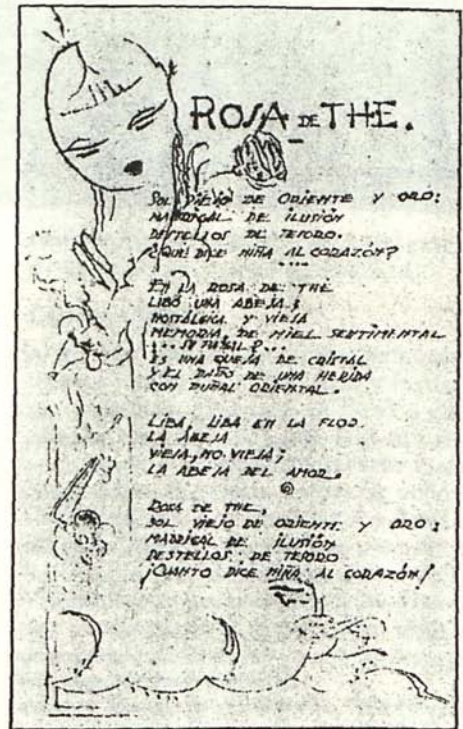 ROSA DE THE.
SOL VIEJO DE ORIENTE Y ORO:
MADRIGAL DE ILUSIÓN
DESTELLOS DE TESORO.
¿QUE DICE NIÑA AL CORAZÓN?
....
EN LA ROSA DE THE
LIBÓ UNA ABEJA;
NOSTÁLGICA Y VIEJA
MEMORIA, DE MIEL SENTIMENTAL
ES UNA QUEJA DE CRISTAL
Y EL DAÑO DE UNA HERIDA
CON PUÑAL ORIENTAL.
LIBA, LIBA EN LA FLOR.
LA ABEJA
VIEJA, NO VIEJA;
LA ABEJA DEL AMOR.
ROSA DE THE,
SOL VIEJO DE ORIENTE Y ORO:
MADRIGAL DE ILUSIÓN
DESTELLOS DE TESORO
¡CUANTO DICE NIÑA AL CORAZÓN!